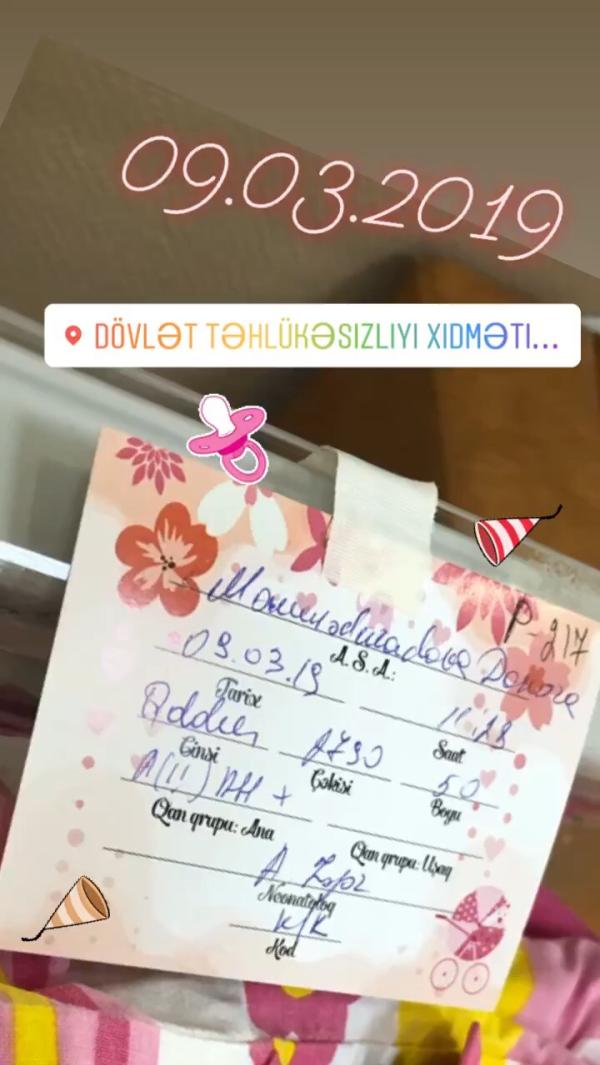 09.03.2019
DÖVLƏT TƏHLÜKƏSIZLIYI XIDMƏTI...
P-217
A.S.A.:
09.03.19 11:18
Tarix Saat
50
Cinsi Çəkisi Boyu
A(II) RH +
Qan qrupu: Ana Qan qrupu: Uşaq
A
Neonatoloq
K/K
Kod